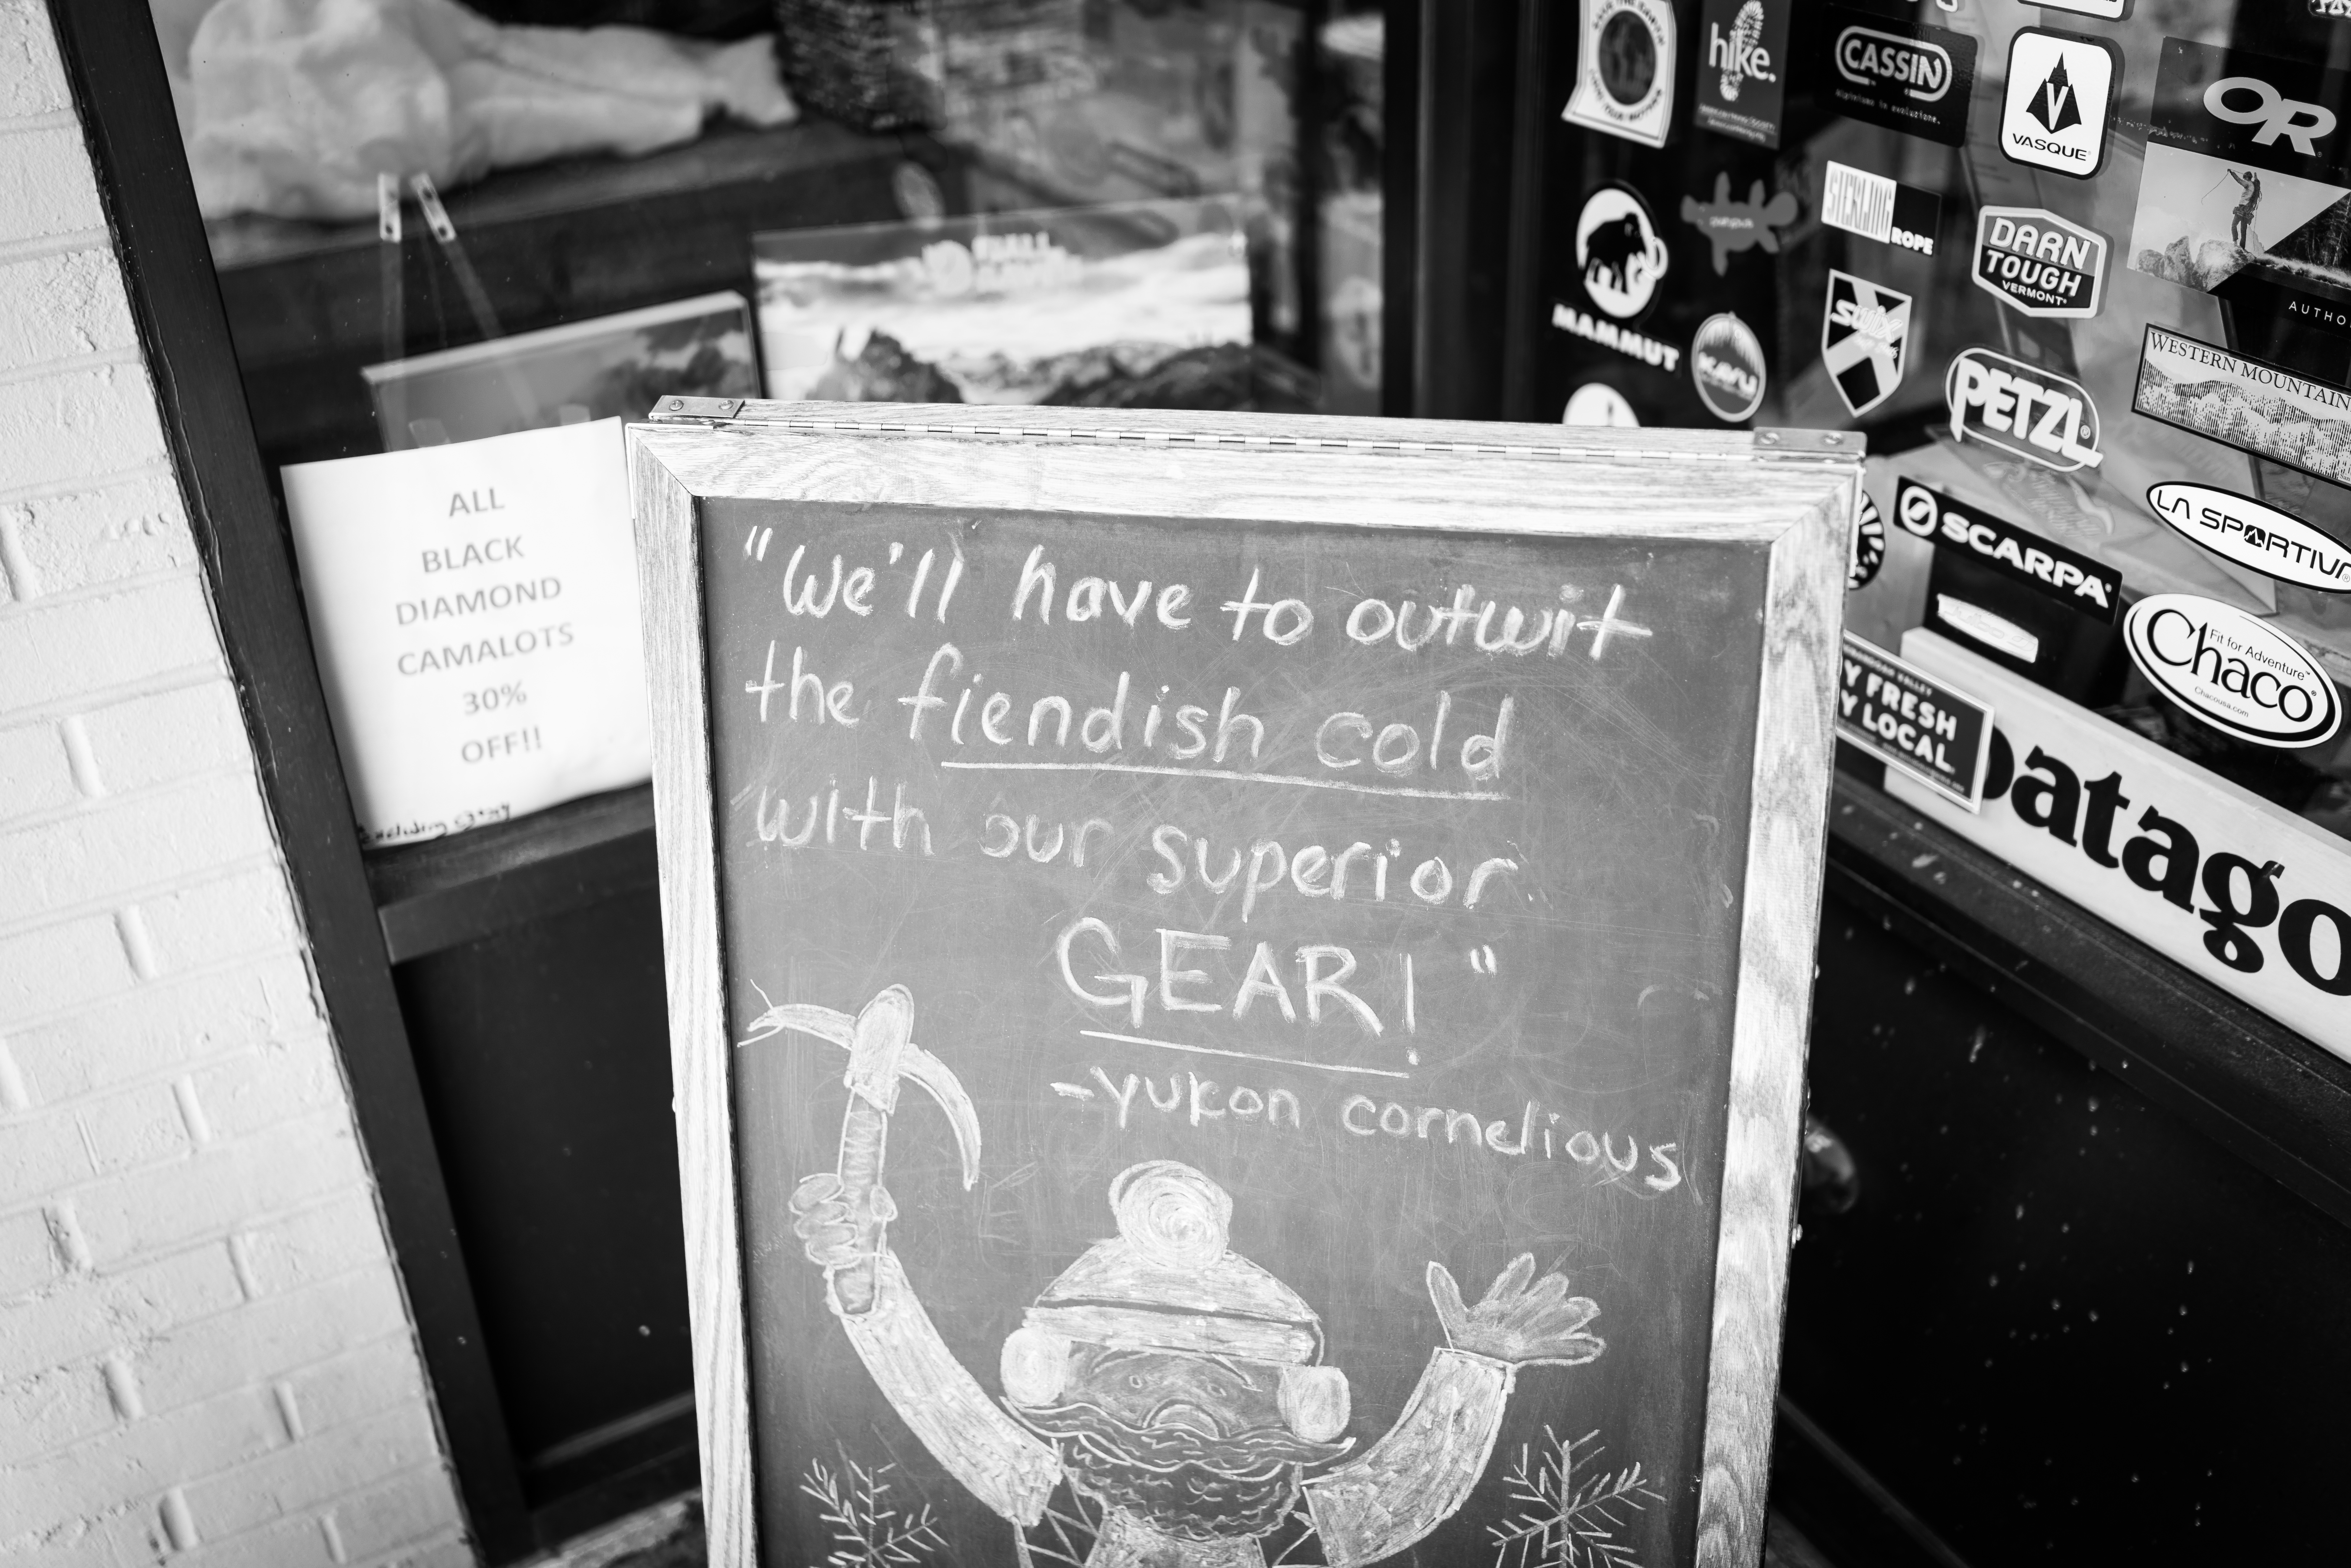 ALL
BLACK
DIAMOND
CAMALOTS
30%
OFF!!
"We'll have to outwit
the fiendish cold
with our superior
GEAR!"
-yukon cornelious
hike.
CASSIN
VASQUE
OR
STERLING
ROPE
DARN
TOUGH
VERMONT
MAMMUT
KAVU
Swix
PETZL
AUTHO
WESTERN MOUNTAIN
SCARPA
LA SPORTIVA
Fit for Adventure™
Chaco
Chacousa.com
Y FRESH
Y LOCAL
patago